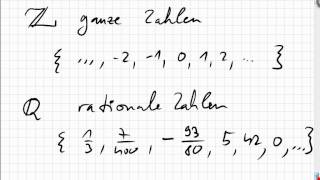 ℤ ganze Zahlen
{ ..., -2, -1, 0, 1, 2, ... }
ℚ rationale Zahlen
{ 1/3, 7/400, - 93/80, 5, 42, 0, ...}